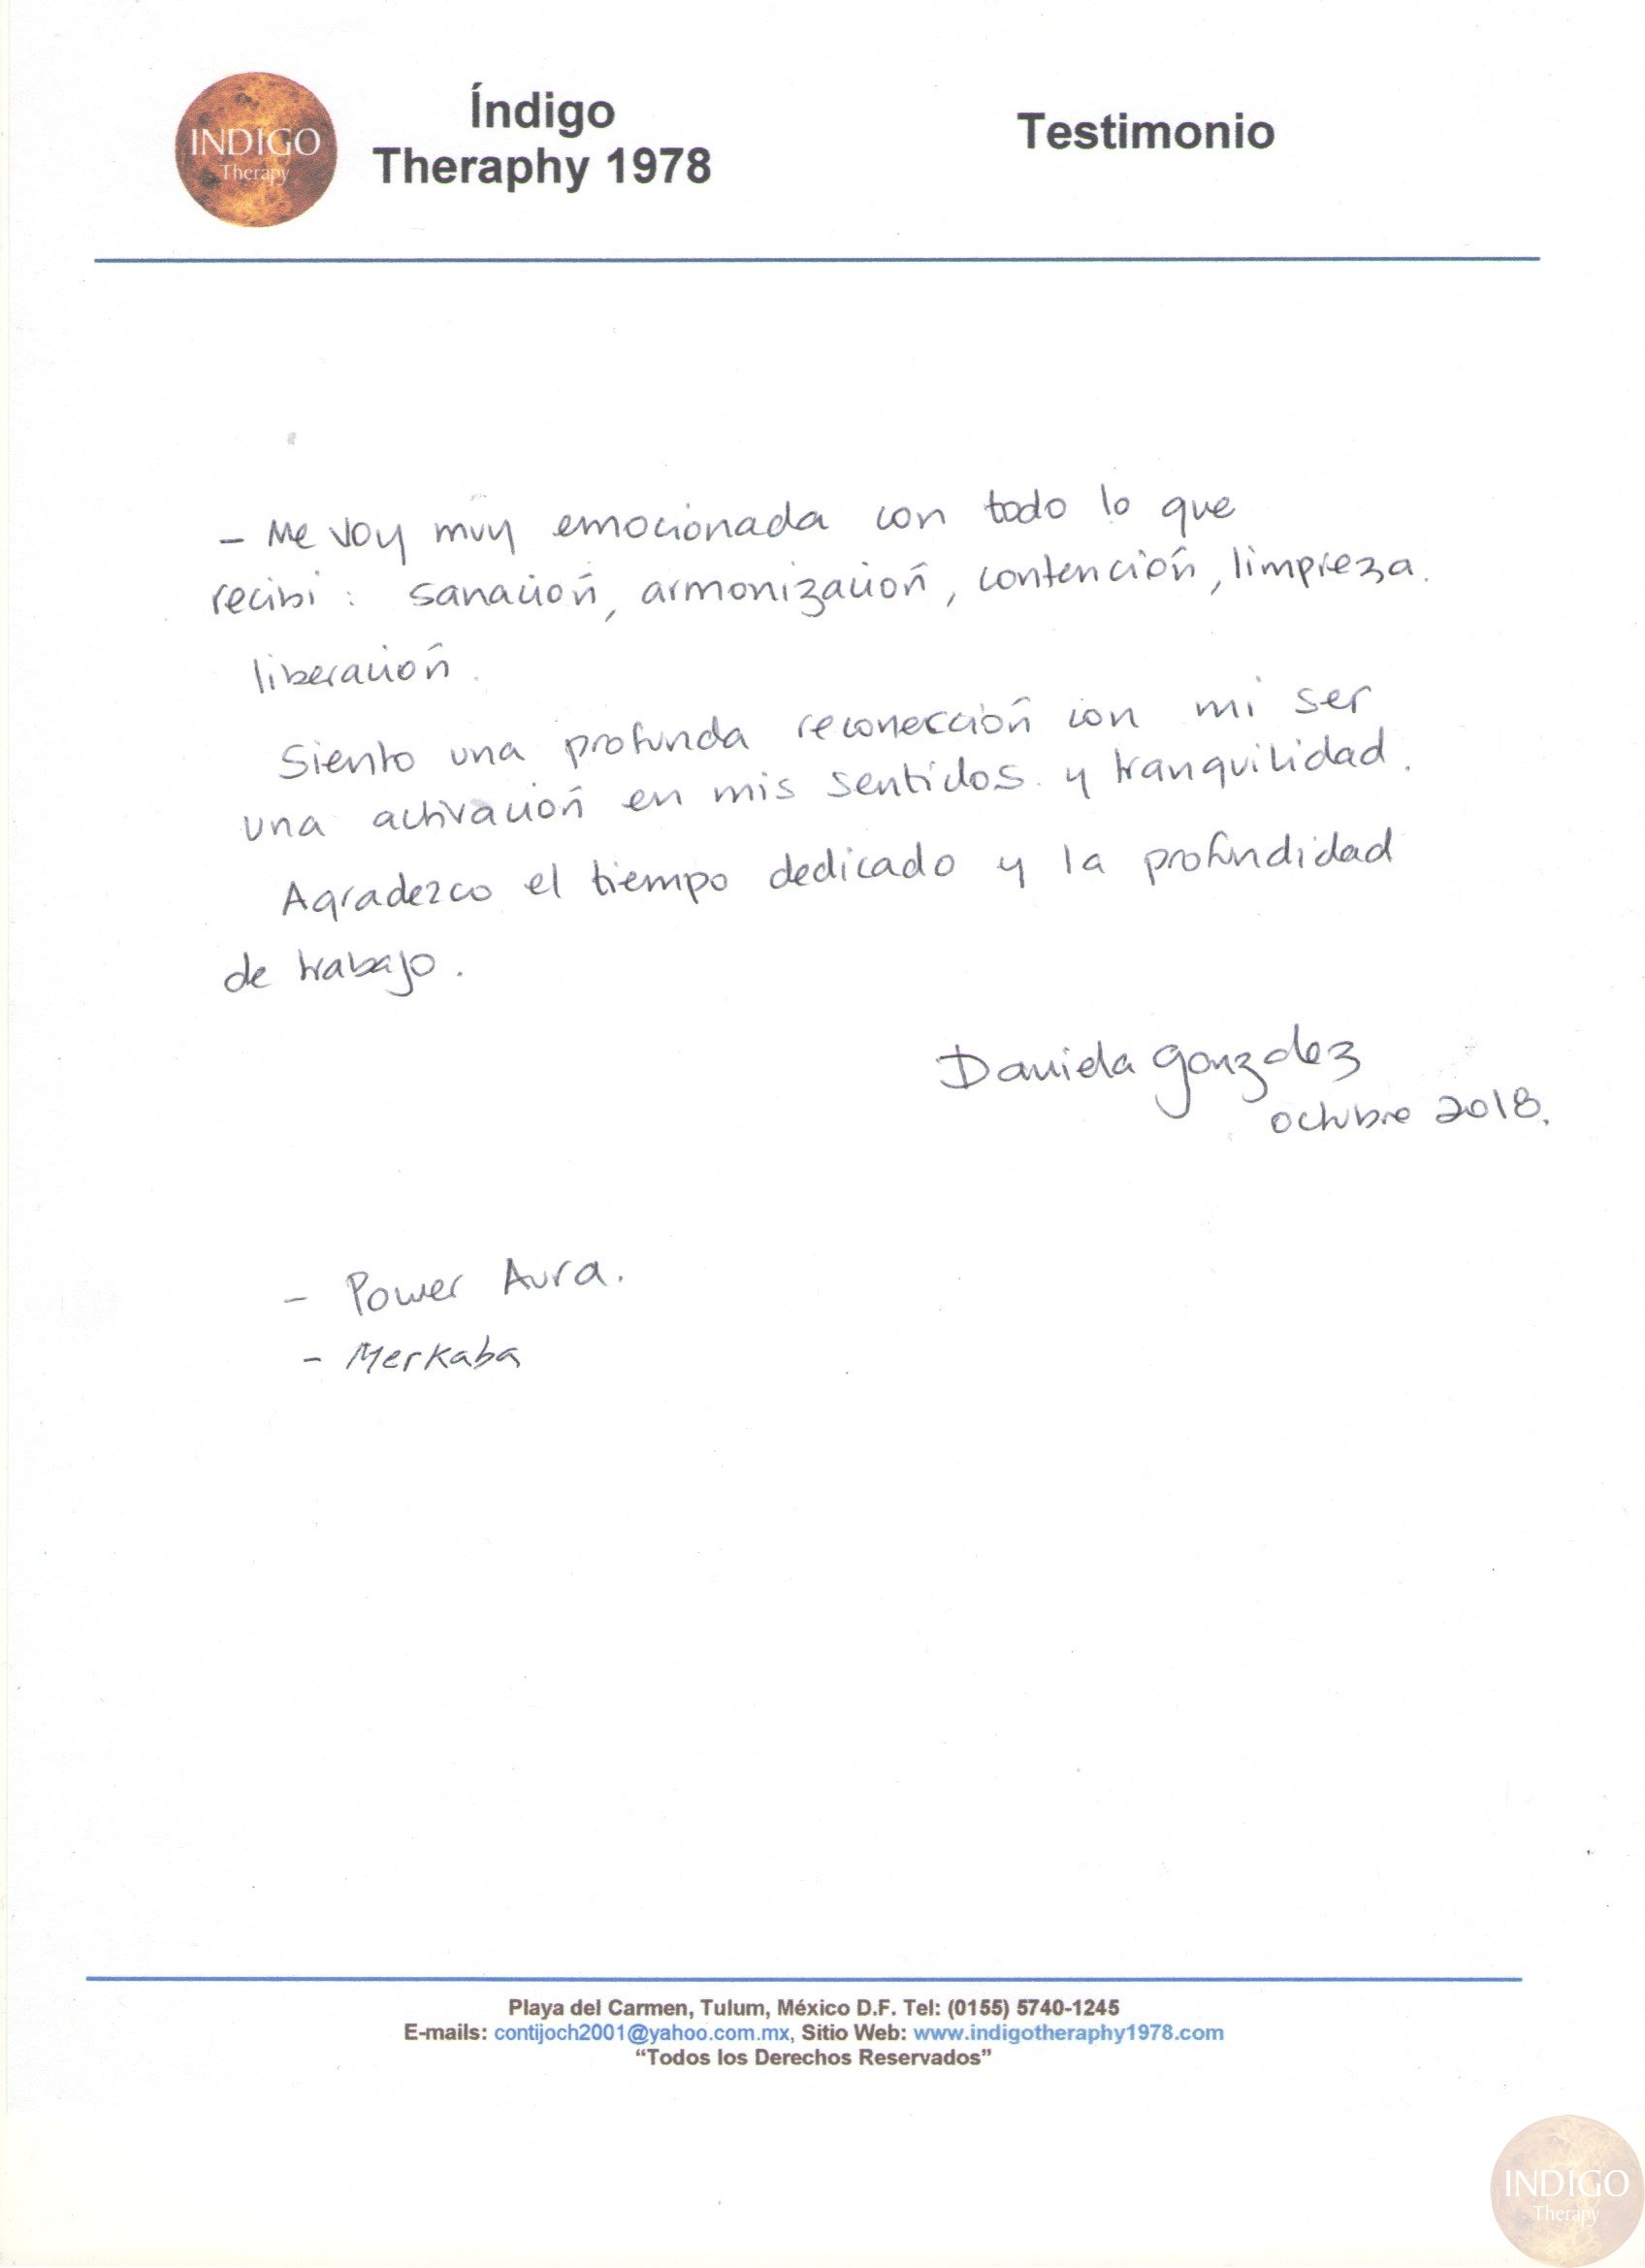 INDIGO
Therapy
Índigo
Theraphy 1978
Testimonio
- Me voy muy emocionada con todo lo que
recibi : sanación, armonización, contención, limpieza.
liberación.
Siento una profunda reconección con mi ser
una activación en mis sentidos y tranquilidad.
Agradezco el tiempo dedicado y la profundidad
de trabajo.
Daniela Gonzalez
octubre 2018.
- Power Aura.
- Merkaba
Playa del Carmen, Tulum, México D.F. Tel: (0155) 5740-1245
E-mails: contijoch2001@yahoo.com.mx, Sitio Web: www.indigotheraphy1978.com
“Todos los Derechos Reservados”
INDIGO
Therapy